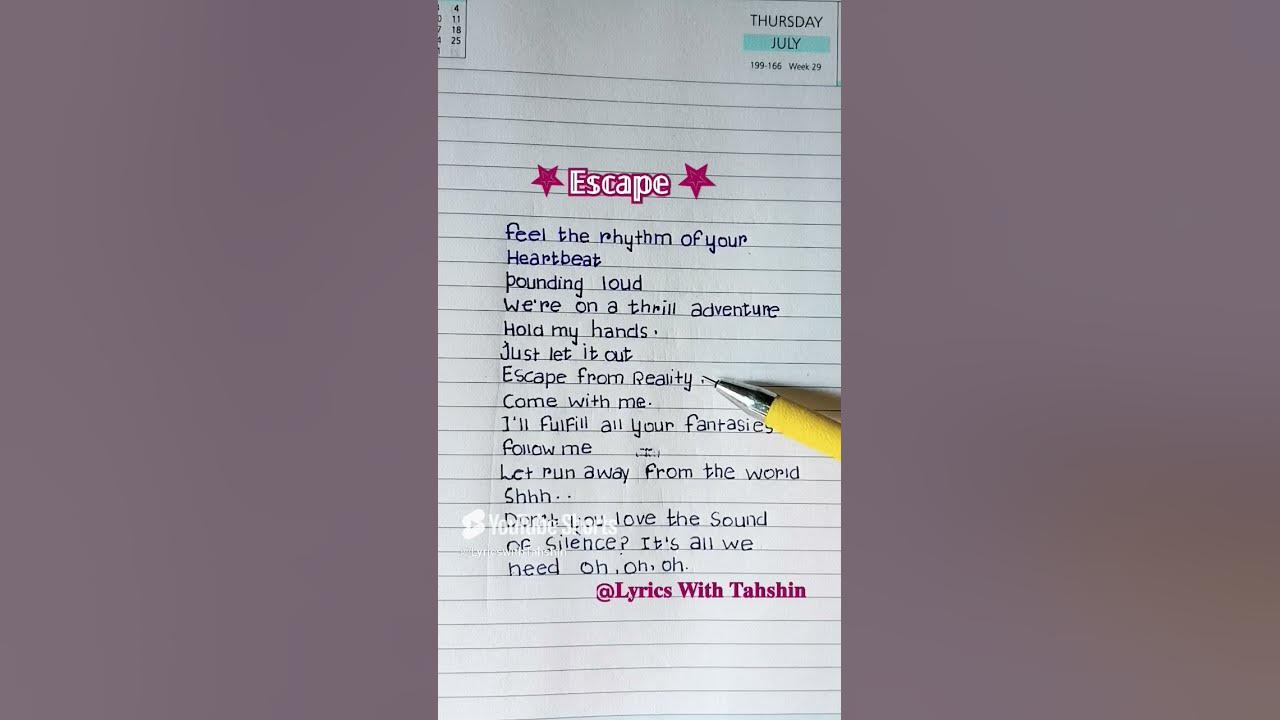 4
11
18
25
THURSDAY
JULY
199-166 Week 29
Escape
feel the rhythm of your
Heartbeat
pounding loud
We're on a thrill adventure
Hold my hands.
Just let it out
Escape from Reality.
Come with me.
I'll fulfill all your fantasies
follow me
Let run away from the world
Shhh..
Don't you love the Sound
YouTube Shorts
of Silence? It's all we
@LyricswithTahshin
need oh, oh, oh.
@Lyrics With Tahshin